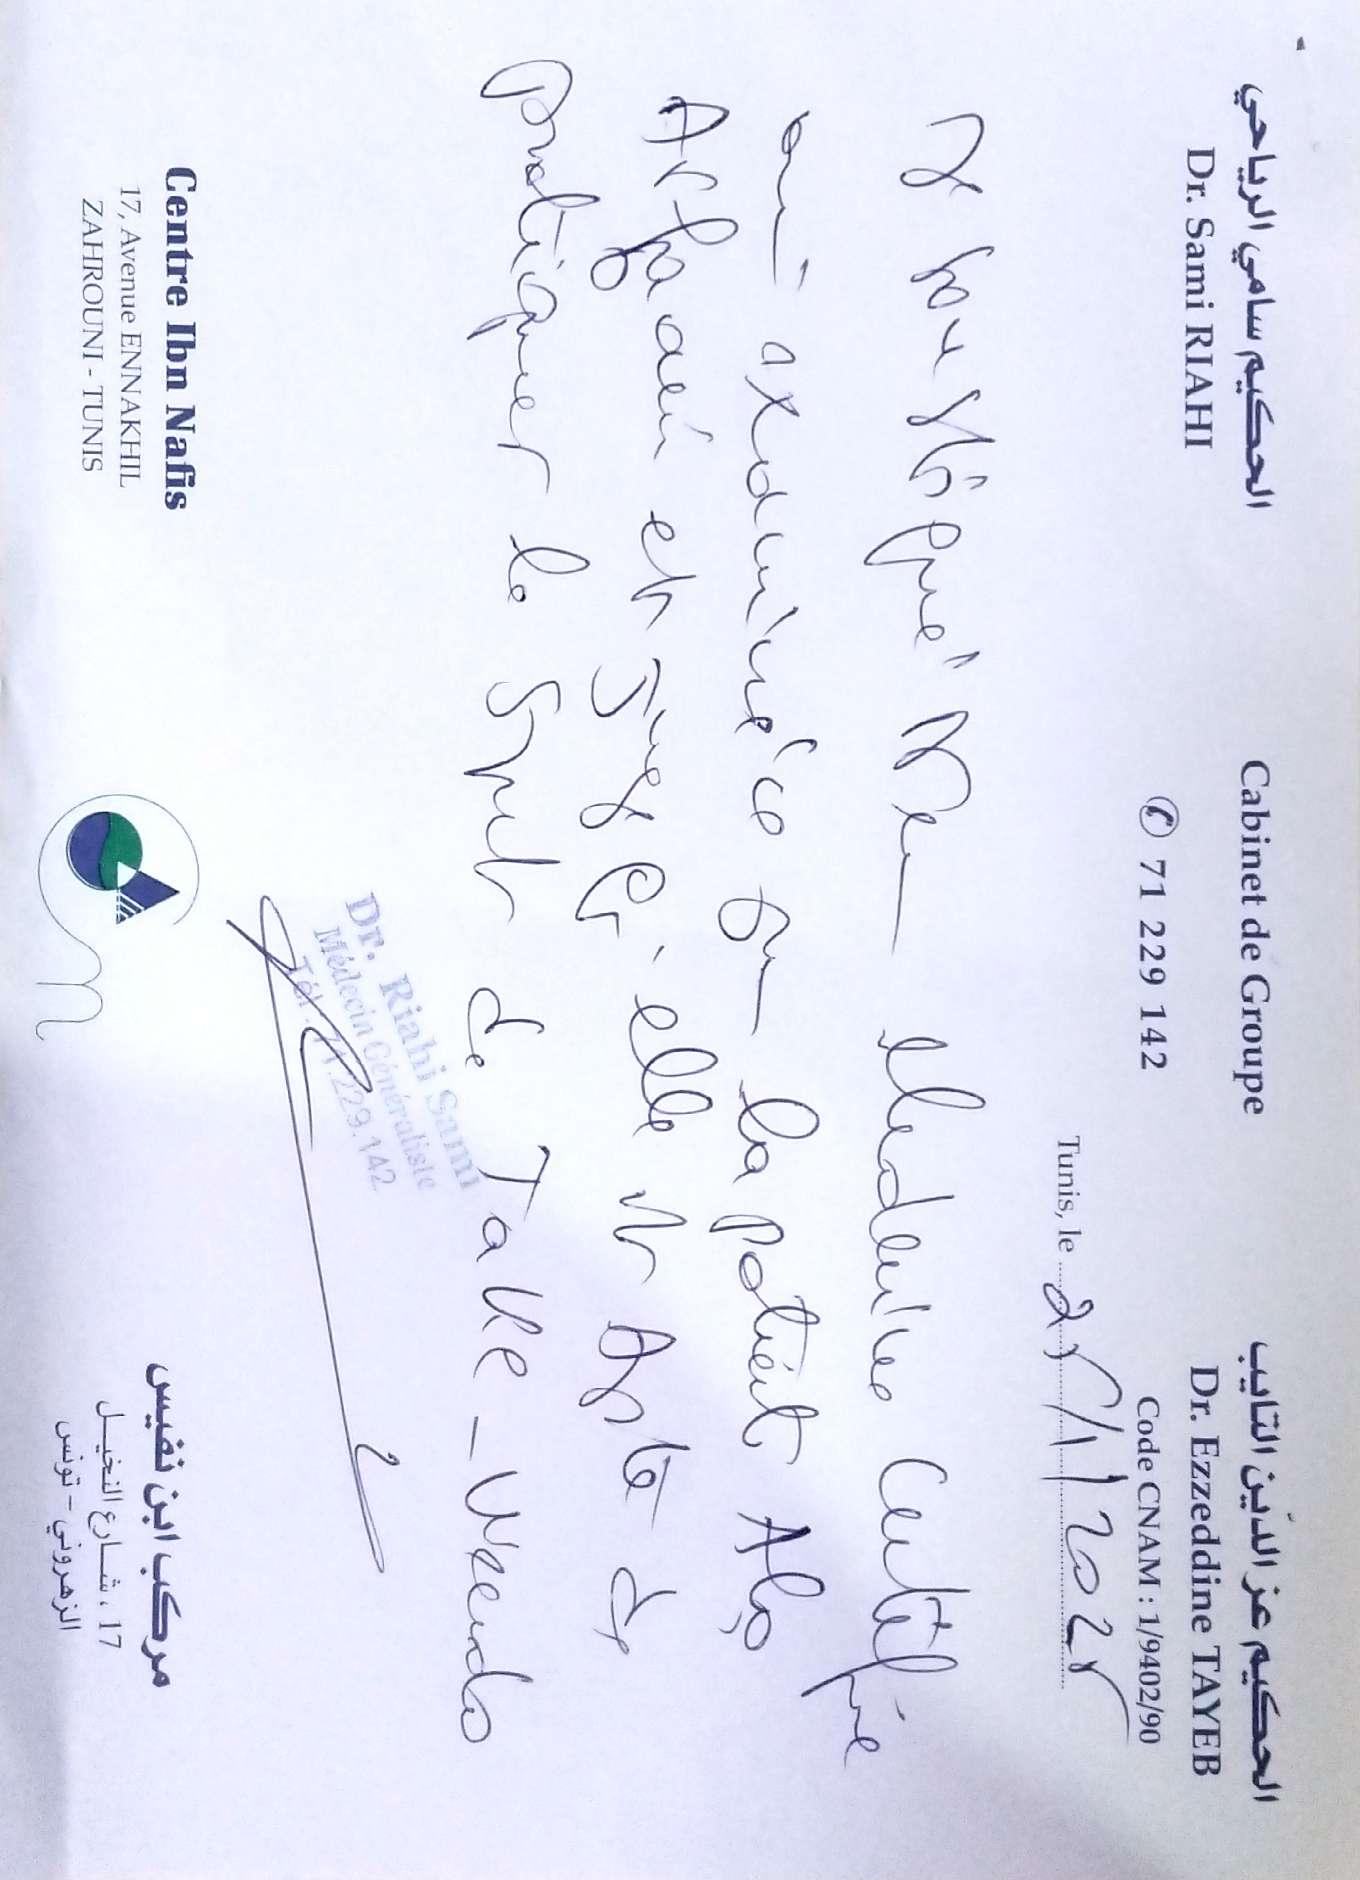 الحكيم سامي الرياحي
Dr. Sami RIAHI
Cabinet de Groupe
✆ 71 229 142
الحكيم عز الدّين التايب
Dr. Ezzeddine TAYEB
Code CNAM : 1/9402/90
Tunis, le 25/1/2025
Je soussigné Dr en Médecine certifie
avoir examiné ce jour la patient Ala
Arfaoui et juge qu'elle est apte de
pratiquer le sport de Taekwondo
Dr. Riahi Sami
Médecin Généraliste
Tél: 71.229.142
Centre Ibn Nafis
17, Avenue ENNAKHIL
ZAHROUNI - TUNIS
مركب ابن نفيس
17 ، شارع النخيل
الزهروني - تونس